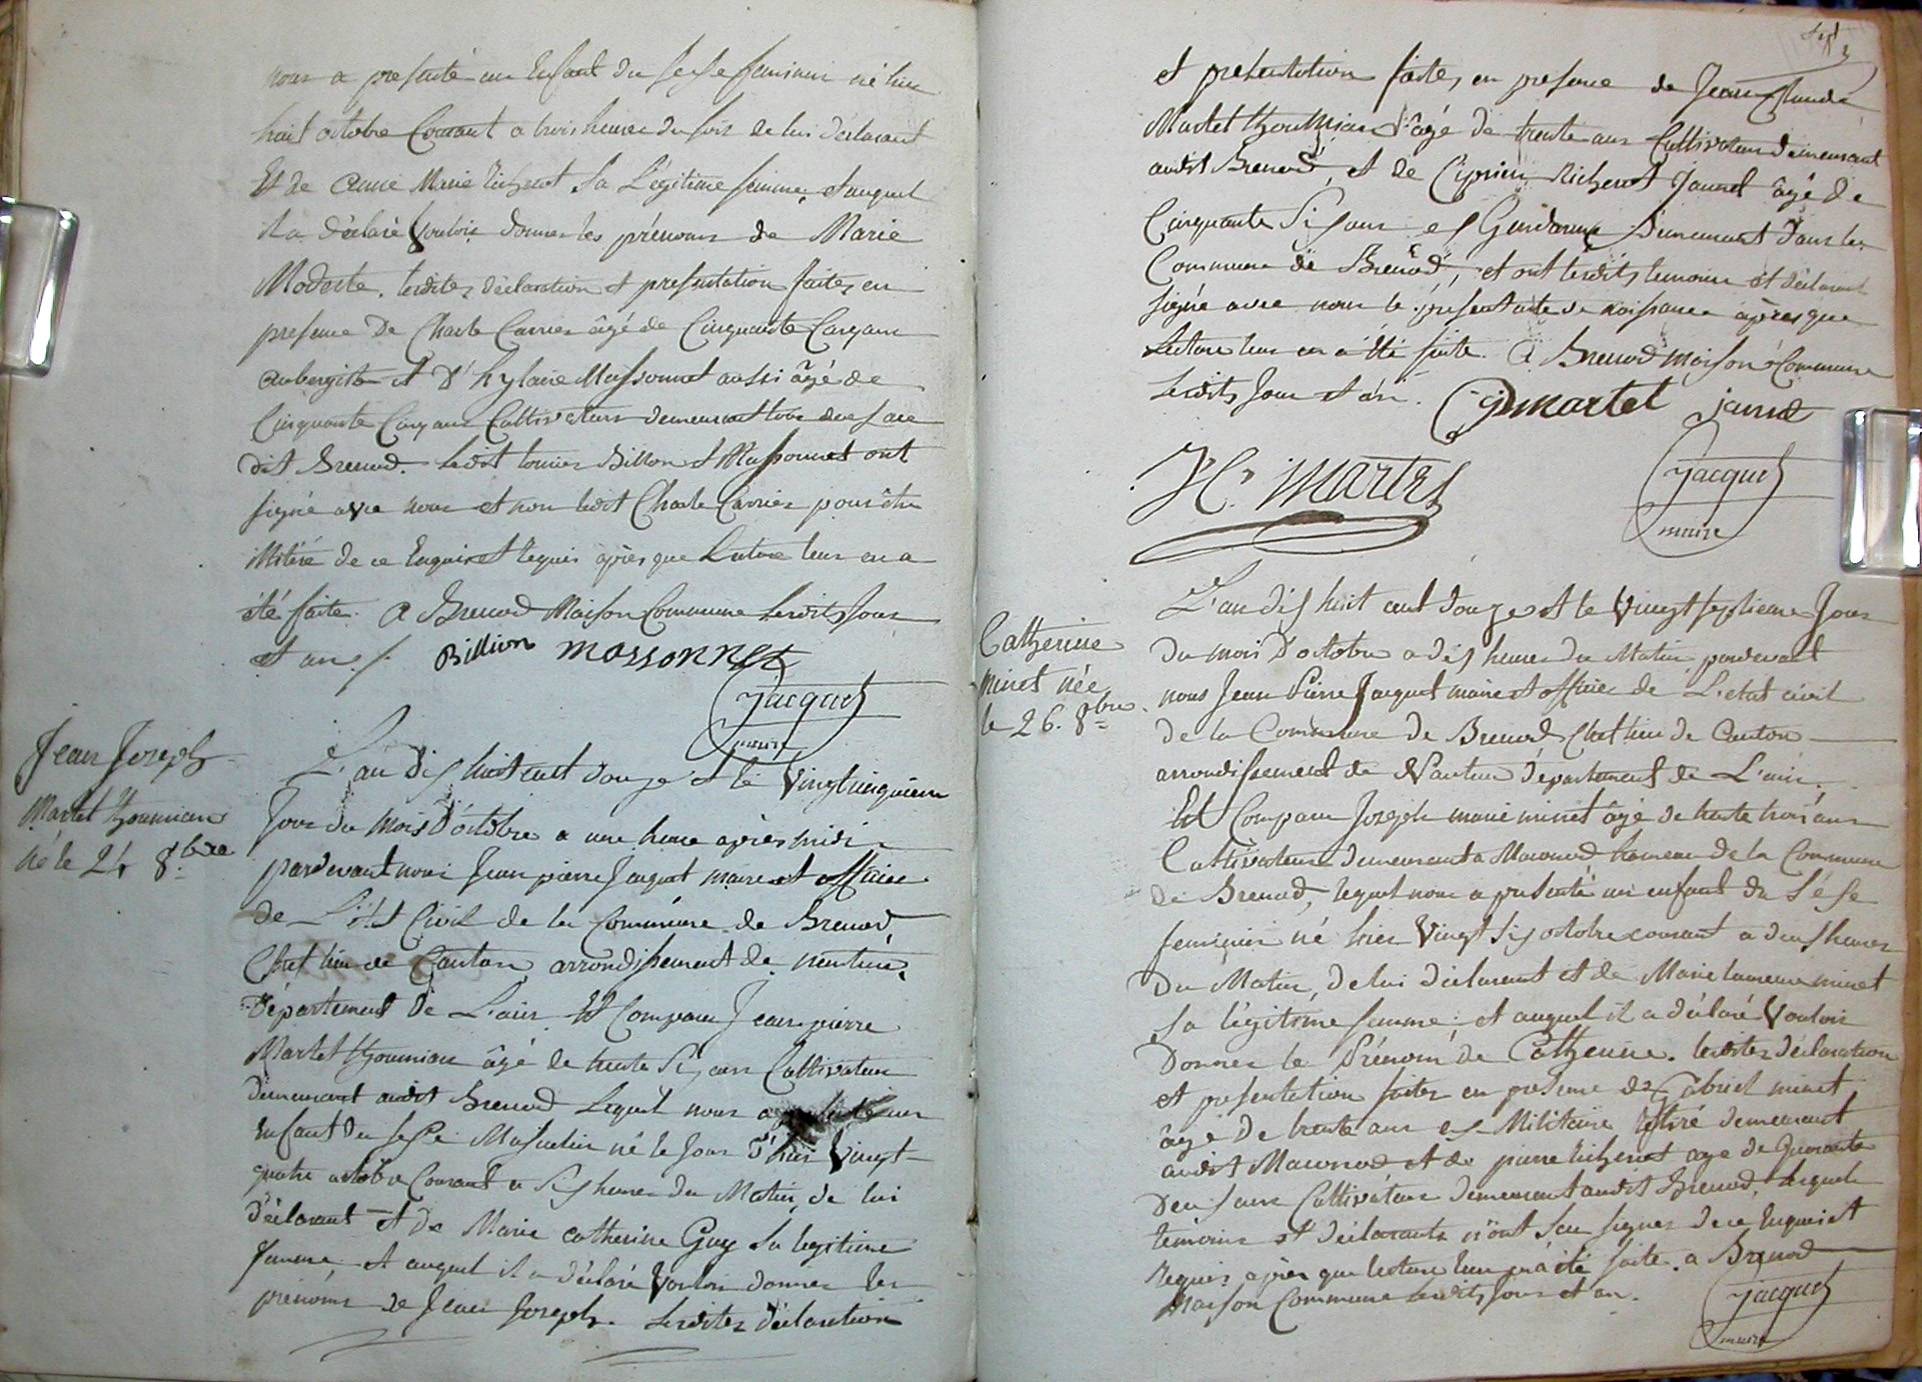 nous a presenté un Enfant du sexe feminin né hier
huit octobre Courant a trois heures du soir de lui déclarant
Et de Anne Marie Richerot Sa Légitime femme, et auquel
il a déclaré Vouloir donner les prénoms de Marie
Modeste. lesdites déclaration et presentation faites en
presence de Charle Carrier âgé de Cinquante Cinq ans
aubergiste et d'hylaire Massonnet aussi âgé de
Cinquante Cinq ans Cultivateur demeurant tous deux au
dit Brenod. Ledit Billion et Massonnet ont
signé avec nous et non ledit Charle Carrier pour être
illitéré de ce Enquis et requis après que Lecture leur en a
été faite. A Brenod Maison Commune Lesdits Jour
et an ./. Billion massonnet
Jacquet
maire
Jean Joseph
Martet thoumian
né le 24 8.bre
L'an dix huit cent douze et le Vingt cinquieme
Jour du Mois d'octobre a une heure après midi
pardevant nous Jean pierre Jacquet maire et officier
de L'état Civil de la Commune de Brenod
Chef lieu de Canton arrondissement de nantua,
Département de L'ain Est Comparu Jean pierre
Martet thoumian âgé de trente Six ans Cultivateur
demeurant audit Brenod Lequel nous a presenté un
Enfant du sexe Masculin né le Jour d'hier Vingt
quatre octobre Courant a Six heures du Matin, de lui
déclarant et de Marie catherine Guy Sa legitime
femme, et auquel il a déclaré Vouloir donner les
prénoms de Jean Joseph. Lesdites déclaration
et presentation faites, en presence de Jean Claude
Martet thoumian âgé de trente ans Cultivateur demeurant
audit Brenod, et de Ciprien Richerot Jannet âgé de
Cinquante Six ans ex Gendarme demeurant dans la
Commune de Brenod, et ont lesdits temoins et déclarant
signé avec nous le présent acte de naissance après que
Lecture leur en a été faite. A Brenod maison Commune
Lesdits Jour et an. martet jannet
martet
Jacquet
maire
Catherine
minet née
le 26. 8bre
L'an dix huit cent douze et le Vingt septieme Jour
Du mois d'octobre a dix heures du Matin pardevant
nous Jean Pierre Jacquet maire et officier de L'etat civil
de la Commune de Brenod Chef lieu de Canton
arrondissement de Nantua Département de L'ain.
Est Comparu Joseph marie minet âgé de trente trois ans
Cultivateur demeurant a Macconod hameau de la Commune
de Brenod, lequel nous a presenté un enfant du Sexe
feminin né hier Vingt Six octobre courant a deux heures
Du Matin, de lui déclarant et de Marie minet
Sa légitime femme: et auquel il a déclaré Vouloir
Donner le Prénom de Catherine. lesdites déclaration
et presentation faites en presence de Gabriel minet
âgé De trente ans ex Militaire retiré demeurant
audit Macconod et de pierre Richerot age de Quarante
Deux ans Cultivateur demeurant audit Brenod, lesquels
témoins et déclarants n'ont Sçu signer de ce Enquis et
requis après que lecture leur en a été faite. a Brenod
Maison Commune lesdits Jour et an.
Jacquet
maire